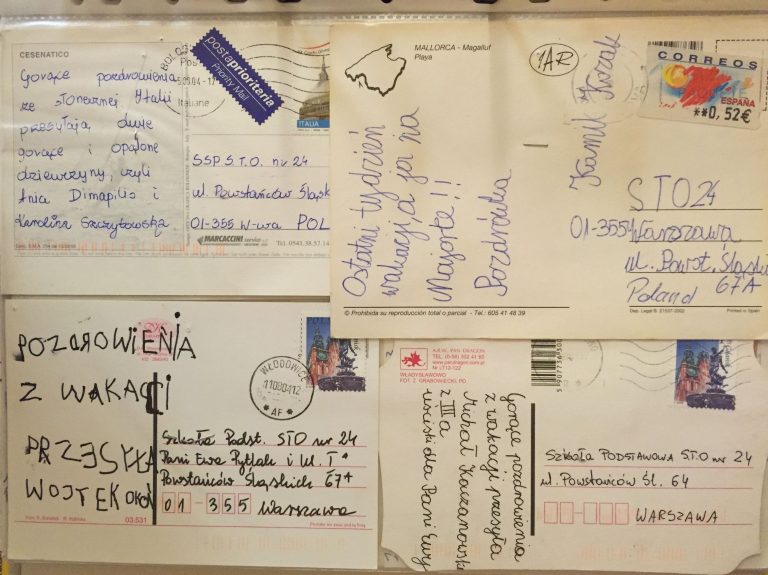 CESENATICO
Gorące pozdrowienia
ze słonecznej Italii
przesyłają dwie
gorące i opalone
dziewczyny, czyli
Ania Dimapilis i
Karolina Szczytowska
postaprioritaria
Priority Mail
Italiane
ITALIA
SSP S.T.O. nr 24
ul. Powstańców Śląsk
01-355 W-wa POL
MARCACCINI
Tel. 0541.38.57.14
MALLORCA - Magalluf
Playa
1AR
Ostatni tydzień
wakacji, a ja na
Majorce!!
Pozdrówka
Kamil Kozak
CORREOS
ESPAÑA
**0,52€
STO 24
01-355 Warszawa
ul. Powst. Śląski
67A
Poland
© Prohibida su reproducción total o parcial - Tel.: 605 41 48 39
Dep. Legal B. 21507-2002
Printed in Spain
POZDROWIENIA
Z WAKACJI
PRZESYŁA
WOJTEK OKOŃ
03.531
WŁODOWICE
*AF*
Szkoła Podst. STO nr 24
Pani Ewa Pytlak i kl. I a
Powstańców Śląskich 67A
01 355 Warszawa
A.R.W. PAN DRAGON
TEL. (0-58) 552 41 90
www.pandragon.com.pl
Nr LT12-122
WŁADYSŁAWOWO
FOT. Z. GRABOWIECKI, PD.
Gorące pozdrowienia
z wakacji przesyła
Michał Kaczanowski
z III a
uściski dla Pani Ewy
SZKOŁA PODSTAWOWA S.T.O nr 24
ul. Powstańców Śl. 64
WARSZAWA